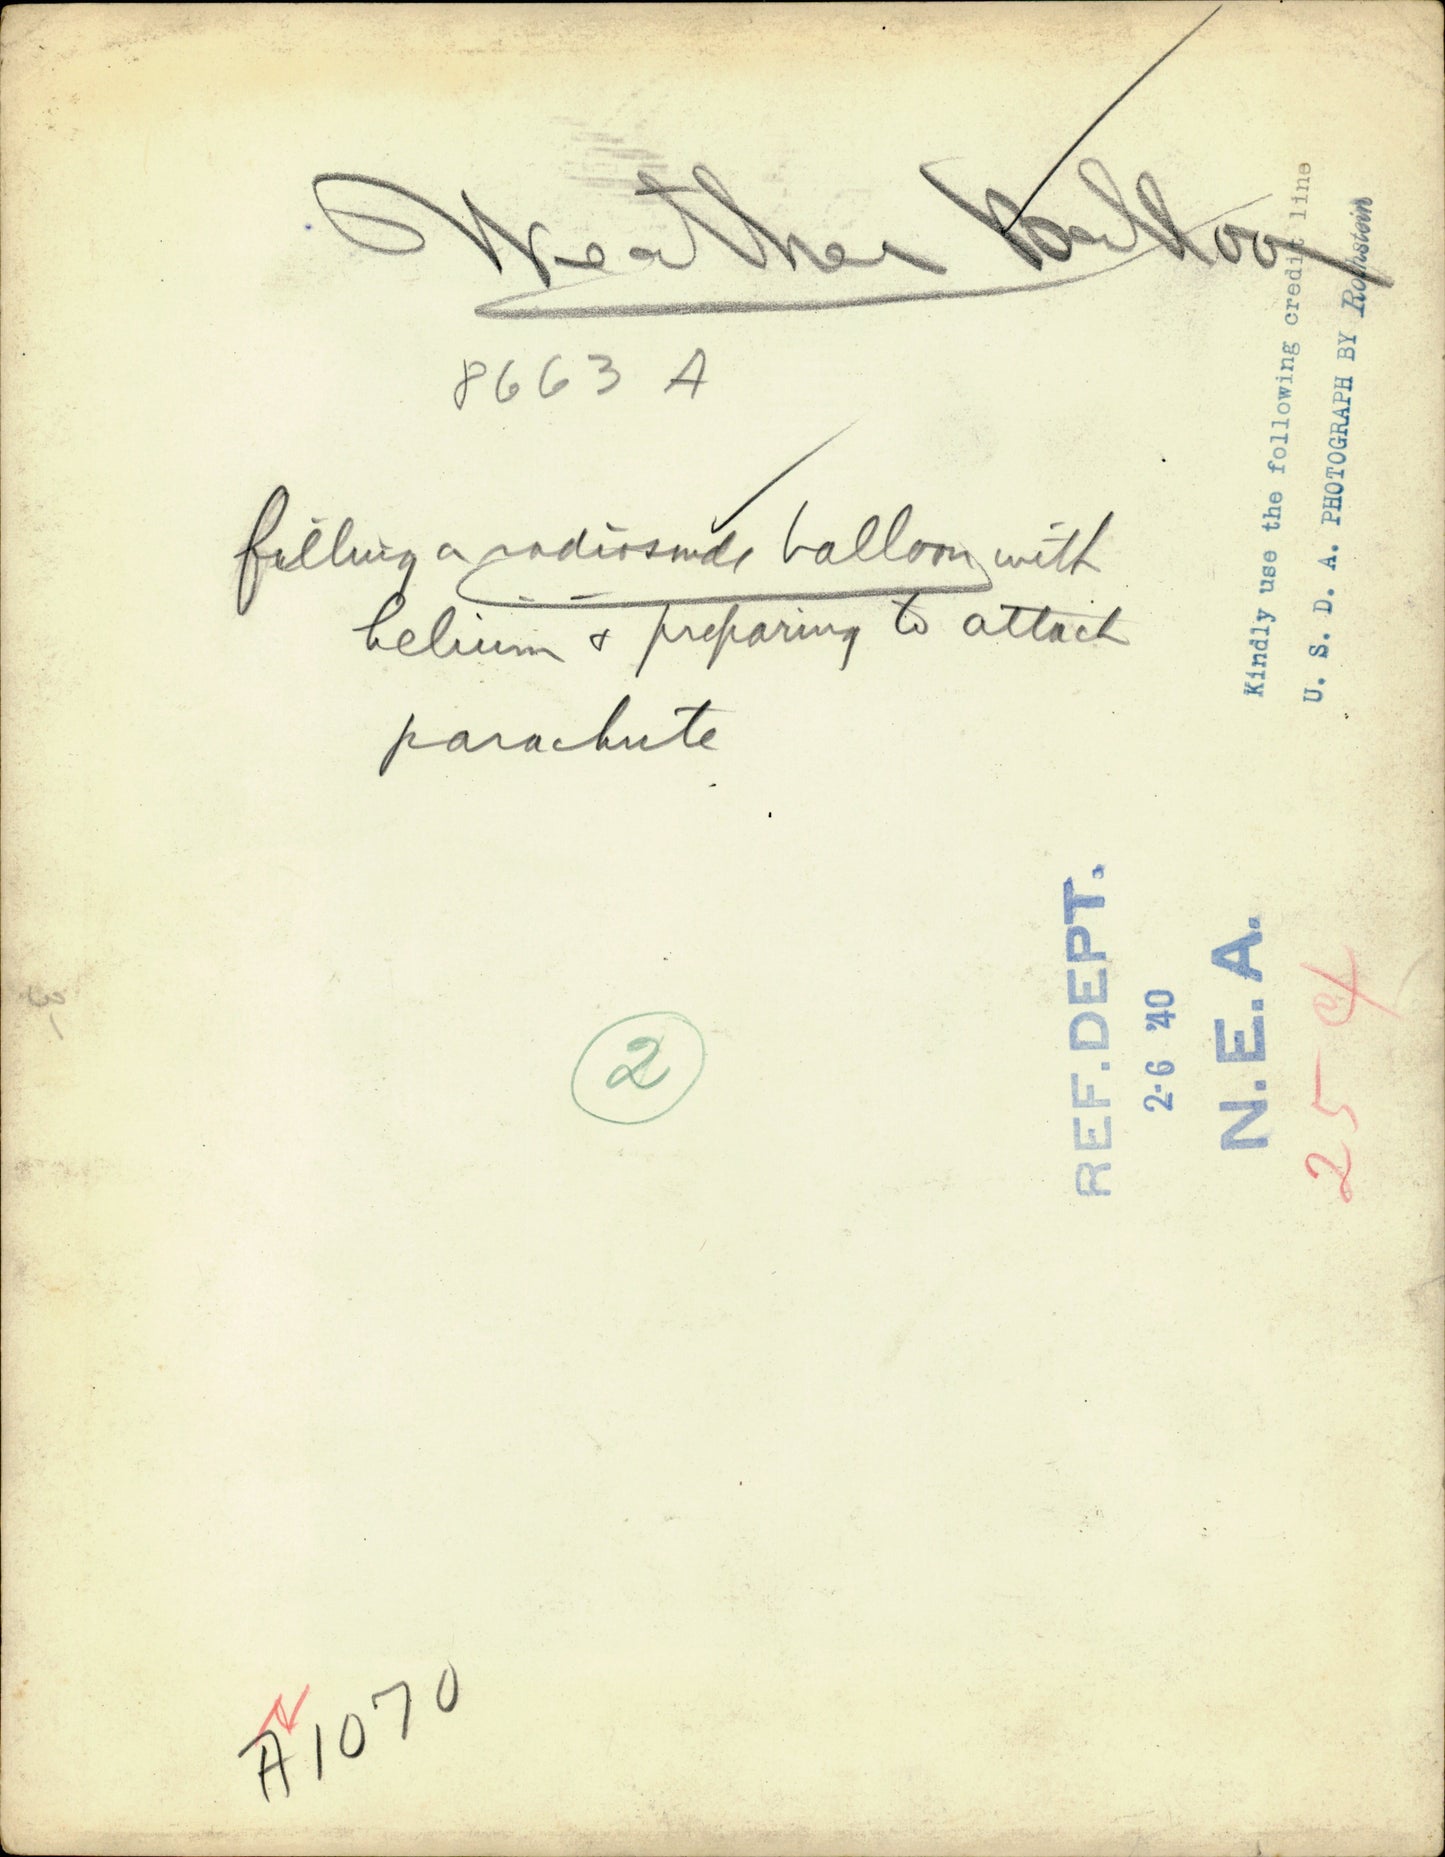 Weather Balloon
8663 A
filling a radiosonde balloon with
helium & preparing to attach
parachute
Kindly use the following credit line
U. S. D. A. PHOTOGRAPH BY
REF. DEPT.
2-6 '40
N. E. A.
2
A1070